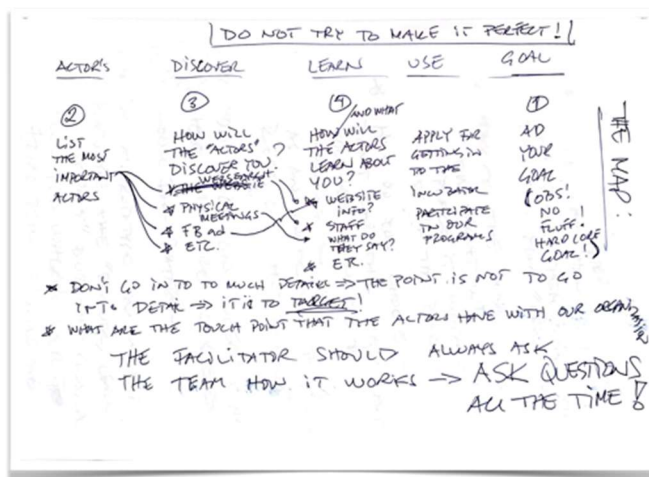 DO NOT TRY TO MAKE IT PERFECT!
ACTOR'S DISCOVER LEARN USE GOAL
② ③ ④ ①
LIST
THE MOST
IMPORTANT
ACTORS
HOW WILL
THE "ACTORS"
DISCOVER YOU?
WEBSEARCH
* THE WEBSITE
* PHYSICAL
MEETINGS
* FB ad
* ETC.
AND WHAT
HOW WILL
THE ACTORS
LEARN ABOUT
YOU?
* WEBSITE
INFO?
* STAFF
WHAT DO
THEY SAY?
* ETC.
APPLY FOR
GETTING IN
TO THE
INCUBATOR
PARTICIPATE
IN OUR
PROGRAMS
AD
YOUR
GOAL
(OBS!
NO
FLUFF!
HARD CORE
GOAL!)
THE MAP:
* DON'T GO IN TO TO MUCH DETAILS => THE POINT IS NOT TO GO
INTO DETAIL => IT IS TO TARGET!
* WHAT ARE THE TOUCH POINT THAT THE ACTORS HAVE WITH OUR ORGANIZATION
THE FACILITATOR SHOULD ALWAYS ASK
THE TEAM HOW IT WORKS -> ASK QUESTIONS
ALL THE TIME!